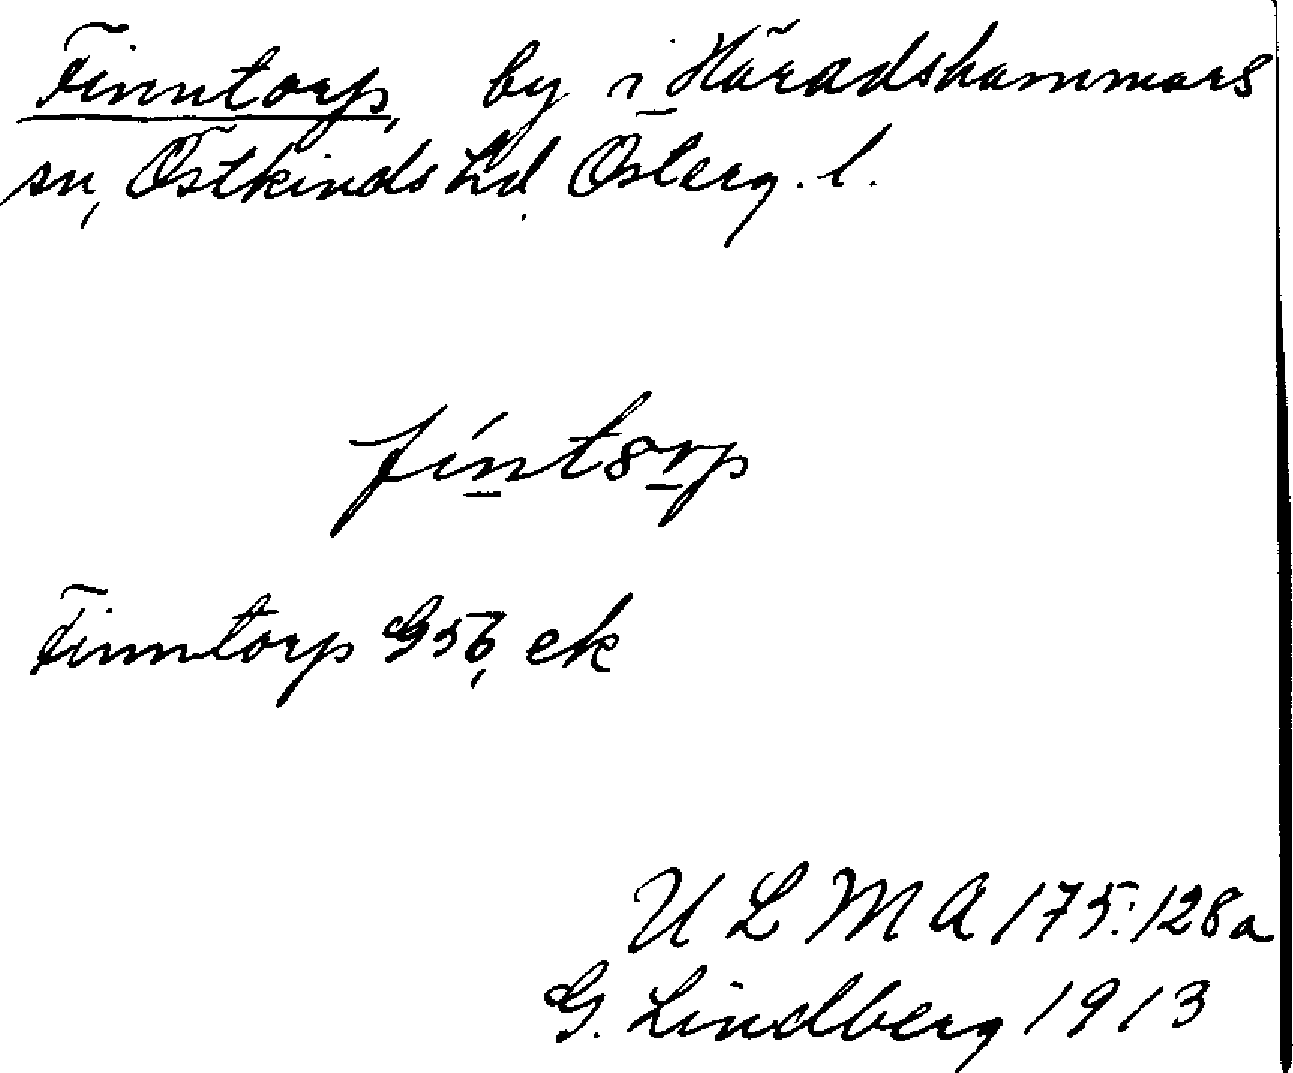 Finntorp, by i Häradshammars
sn, Östkinds hd. Österg. l.
fíntȣrp
Finntorp G56, ek
ULMA 175:128a
G. Lindberg 1913